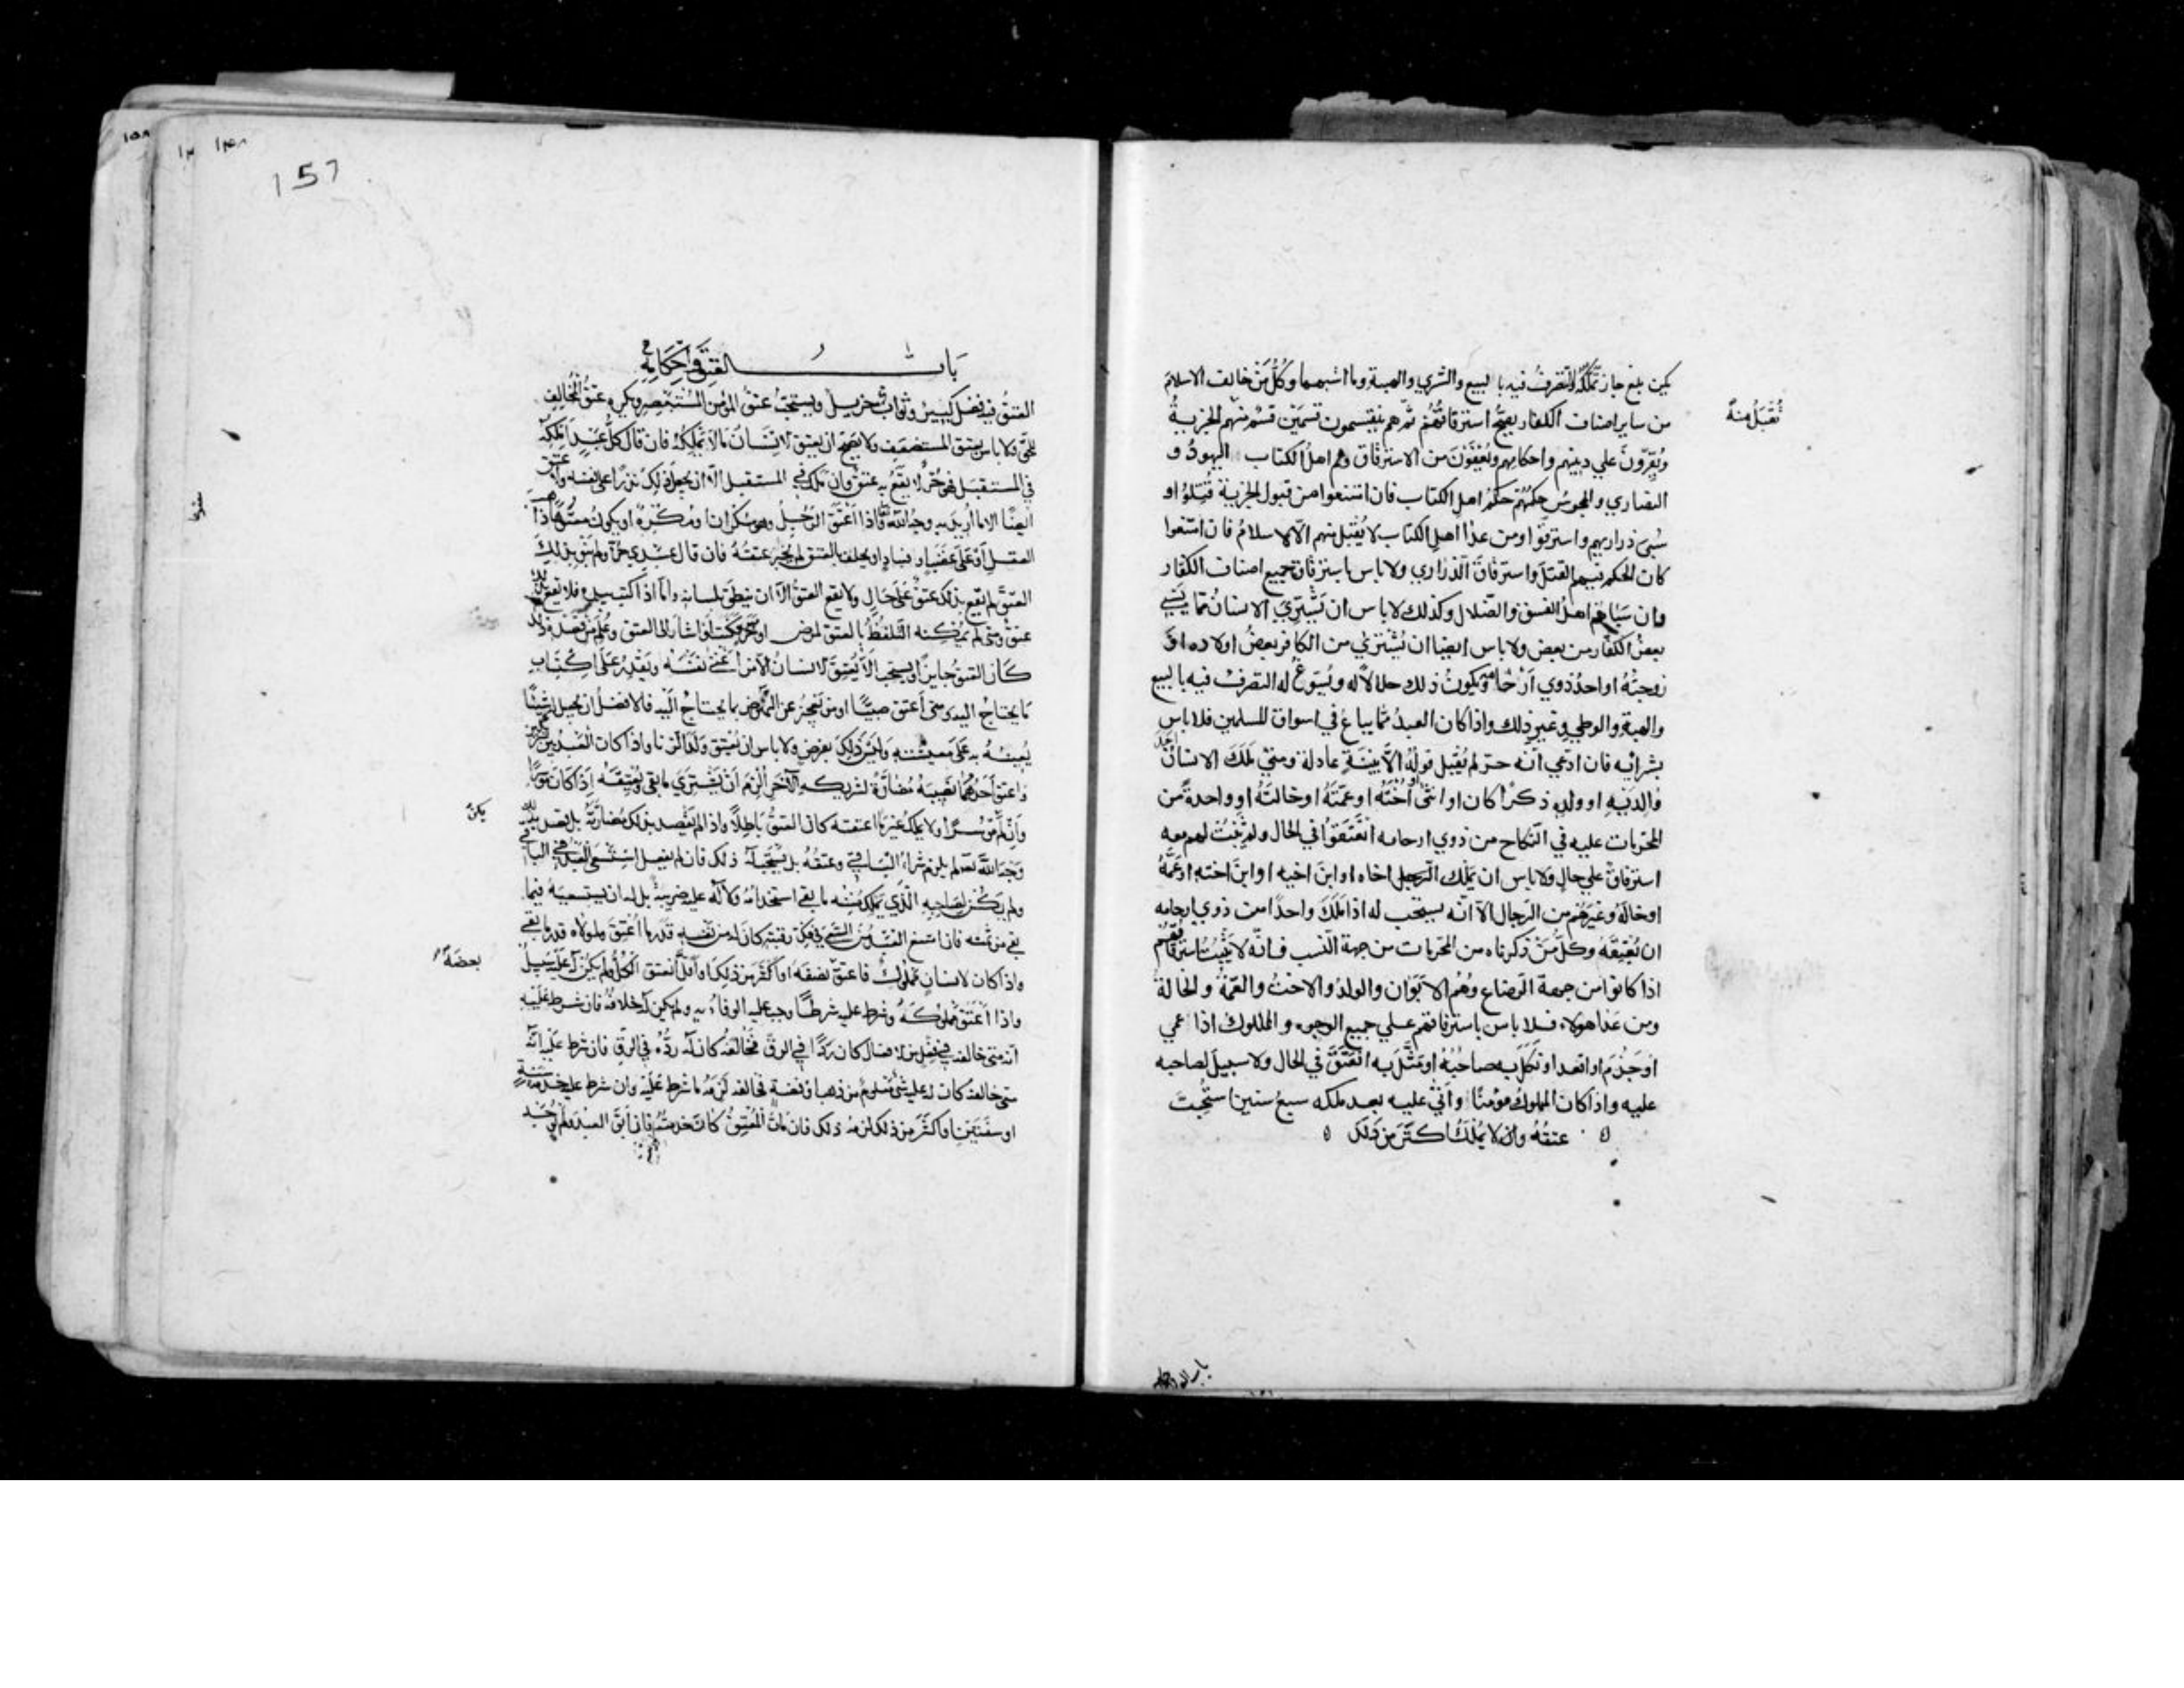 يكن بلغ جاز تملكه والتصرف فيه بالبيع والشرى والهبة وما اشبهما وكل من خالف الاسلام
من ساير اصناف الكفار يصح استرقاقهم ثم هم ينقسمون قسمين قسم منهم الجزية
تقبل منه
ويقرون علي دينهم واحكامهم ويعفون من الاسترقاق وهم اهل الكتاب اليهود و
النصاري والمجوس حكمهم حكم اهل الكتاب فان امتنعوا من قبول الجزية قتلوا و
سبي ذراريهم واسترقوا ومن عدا اهل الكتاب لا يقبل منهم الا الاسلام فان امتنعوا
كان الحكم فيهم القتل واسترقاق الذراري ولا باس باسترقاق جميع اصناف الكفار
وان سباهم اهل الفسق والضلال وكذلك لا باس ان يشتري الانسان مما يسبي
بعض الكفار من بعض ولا باس ايضا ان يشتري من الكافر بعض اولاده او
زوجته او احد ذوي ارحامه ويكون ذلك حلالا له ويسوغ له التصرف فيه بالبيع
والهبة والوطي وغير ذلك واذا كان العبد مما يباع في اسواق المسلمين فلا باس
بشرائه فان ادعي انه حر لم يقبل قوله الا ببينة عادلة ومتي ملك الانسان احد
والديه او ولده ذكرا كان او انثى او اخته او عمته او خالته او واحدة من
المحرمات عليه في النكاح من ذوي ارحامه انعتقوا في الحال ولم يثبت لهم معه
استرقاق علي حال ولا باس ان يملك الرجل اخاه او ابن اخيه او ابن اخته او عمه
او خاله وغيرهم من الرجال الا انه يستحب له اذا ملك واحدا من ذوي ارحامه
ان يعتقه وكل من ذكرناه من المحرمات من جهة النسب فانه لا يثبت استرقاقهم
اذا كانوا من جهة الرضاع وهم الابوان والولد والاخت والعمة والخالة
ومن عدا هولاء فلا باس باسترقاقهم علي جميع الوجوه والمملوك اذا عمي
او جذم او اقعد او نكل به صاحبه او مثل به انعتق في الحال ولا سبيل لصاحبه
عليه واذا كان المملوك مؤمنا واتي عليه بعد ملكه سبع سنين استحب
عتقه وان لا يملك اكثر من ذلك
157
باب العتق واحكامه
العتق فيه فضل كبير وثواب جزيل ويستحب عتق المؤمن المستبصر ويكره عتق المخالف
للحق ولا باس بعتق المستضعف ولا يصح ان يعتق الانسان ما لا يملكه فان قال كل عبد املكه
في المستقبل فهو حر لا يقع به عتق وان ملك في المستقبل الا ان يجعل ذلك نذرا على نفسه ولا عتق
ايضا الا ما اريد به وجه الله تعالى واذا اعتق الرجل وهو سكران او مكره او يكون
العقل او على غضب او فساد او يحلف بالعتق لم يجز عتقه فان قال عبدي حر ولم ينو بذلك
العتق لم يقع بذلك عتق على حال ولا يقع العتق الا ان ينطق بلسانه واما اذا كتب بيده فلا يقع به
عتق ومتى لم يمكنه التلفظ بالعتق لمرض او خرس وكتب او اشار الى العتق وعلم من قصده ذلك
كان العتق جايزا ويستحب الا يعتق الانسان الا من اغنى نفسه ويقدر على اكتساب
ما يحتاج اليه ومتى اعتق صبيا او من يعجز عن النهوض بما يحتاج اليه فالافضل ان يجعل له شيئا
يعينه به على معيشته وليس ذلك بفرض ولا باس ان يعتق ولد الزنا واذا كان العبد بين شريكين
واعتق احدهما نصيبه مضارة لشريكه الآخر الزم ان يشتري ما بقى ويعتقه اذا كان موسرا
وان لم يكن موسرا ولا يملك غير ما اعتقه كان العتق باطلا واذا لم يقصد بذلك مضارته بل قصد بذلك
وجه الله تعالى لم يلزم شراء الباقي وعتقه بل يستحب له ذلك فان لم يفعل استسعى العبد في الباقي
ولم يكن لصاحبه الذي يملك منه ما بقي استخدامه ولا له عليه ضريبة بل له ان يستسعيه فيما
بقي من ثمنه فان امتنع العبد من السعي في فك رقبته كان له من نفسه قدر ما اعتق ولمولاه قدر ما بقي
واذا كان لانسان مملوك فاعتق بعضه نصفه او اكثر من ذلك او اقل انعتق الكل ولم يكن له عليه سبيل
واذا اعتق مملوكه وشرط عليه شرطا وجب عليه الوفاء به ولم يكن له خلافه فان شرط عليه
انه متى خالفه في فعل من الافعال كان ردا في الرق فخالفه كان له رده في الرق فان شرط عليه انه
متى خالفه كان له عليه شيء معلوم من ذهب او فضة فخالفه لزمه ما شرط عليه وان شرط عليه خدمة سنة
او سنتين او اكثر من ذلك لزمه ذلك فان مات المعتق كان خدمته فان ابق العبد ولم يوجد